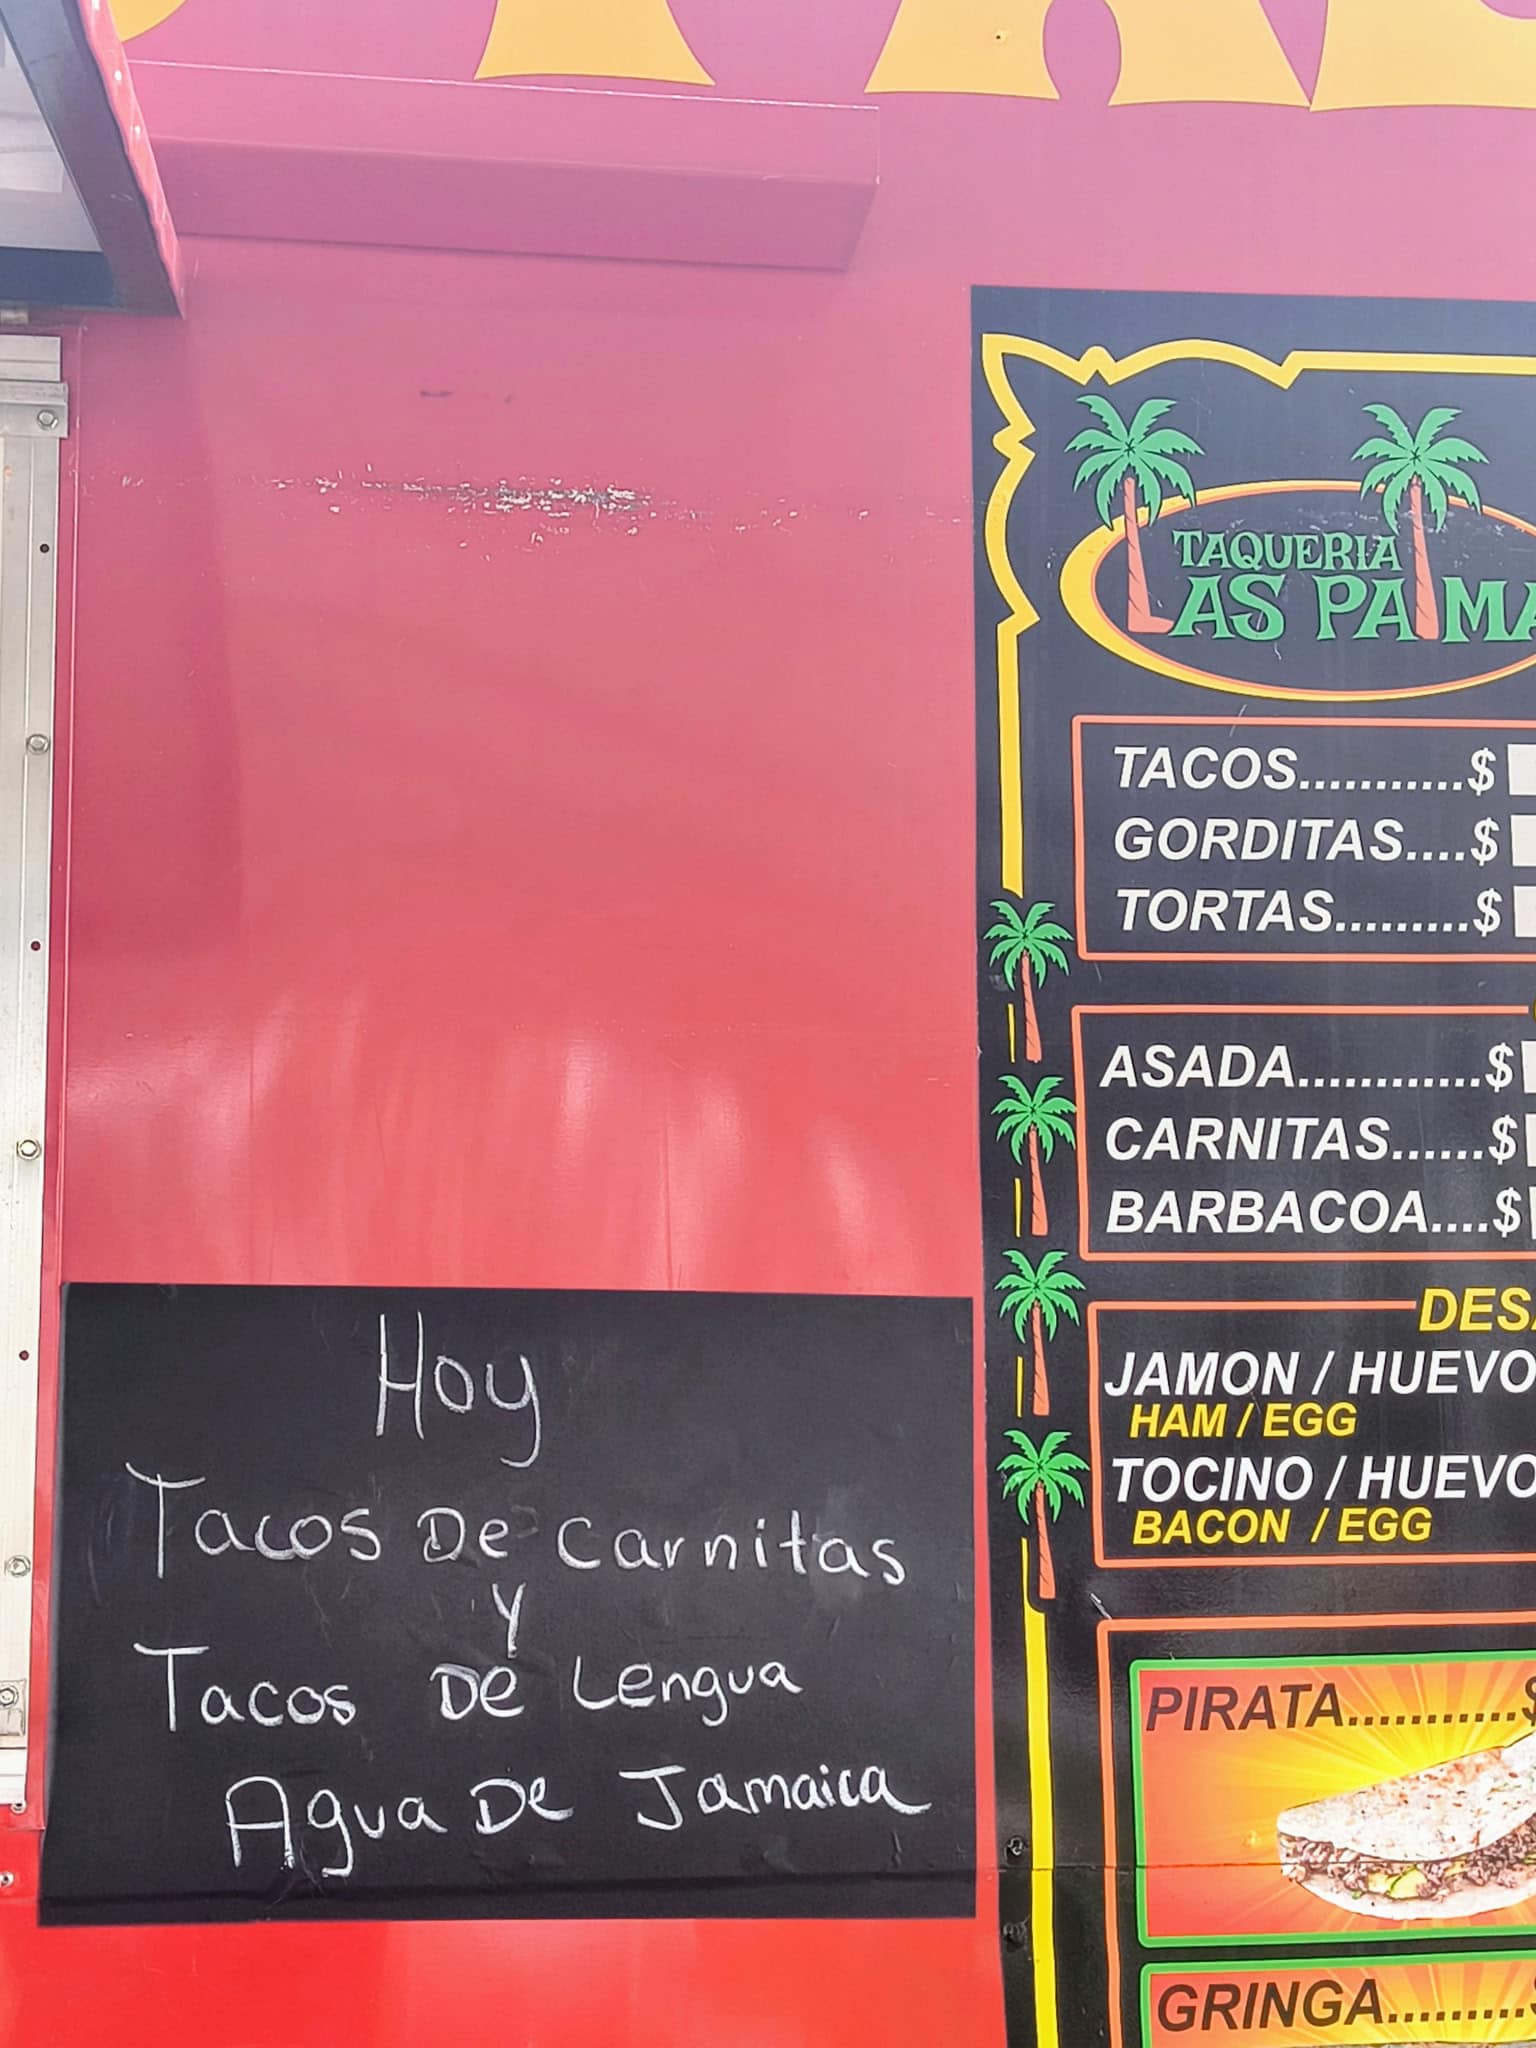 Hoy
Tacos De Carnitas
y
Tacos De Lengua
Agua De Jamaica
TAQUERIA
LAS PALMA
TACOS...........$
GORDITAS....$
TORTAS.........$
ASADA............$
CARNITAS......$
BARBACOA....$
JAMON / HUEVO
HAM / EGG
TOCINO / HUEVO
BACON / EGG
PIRATA...........$
GRINGA.........$